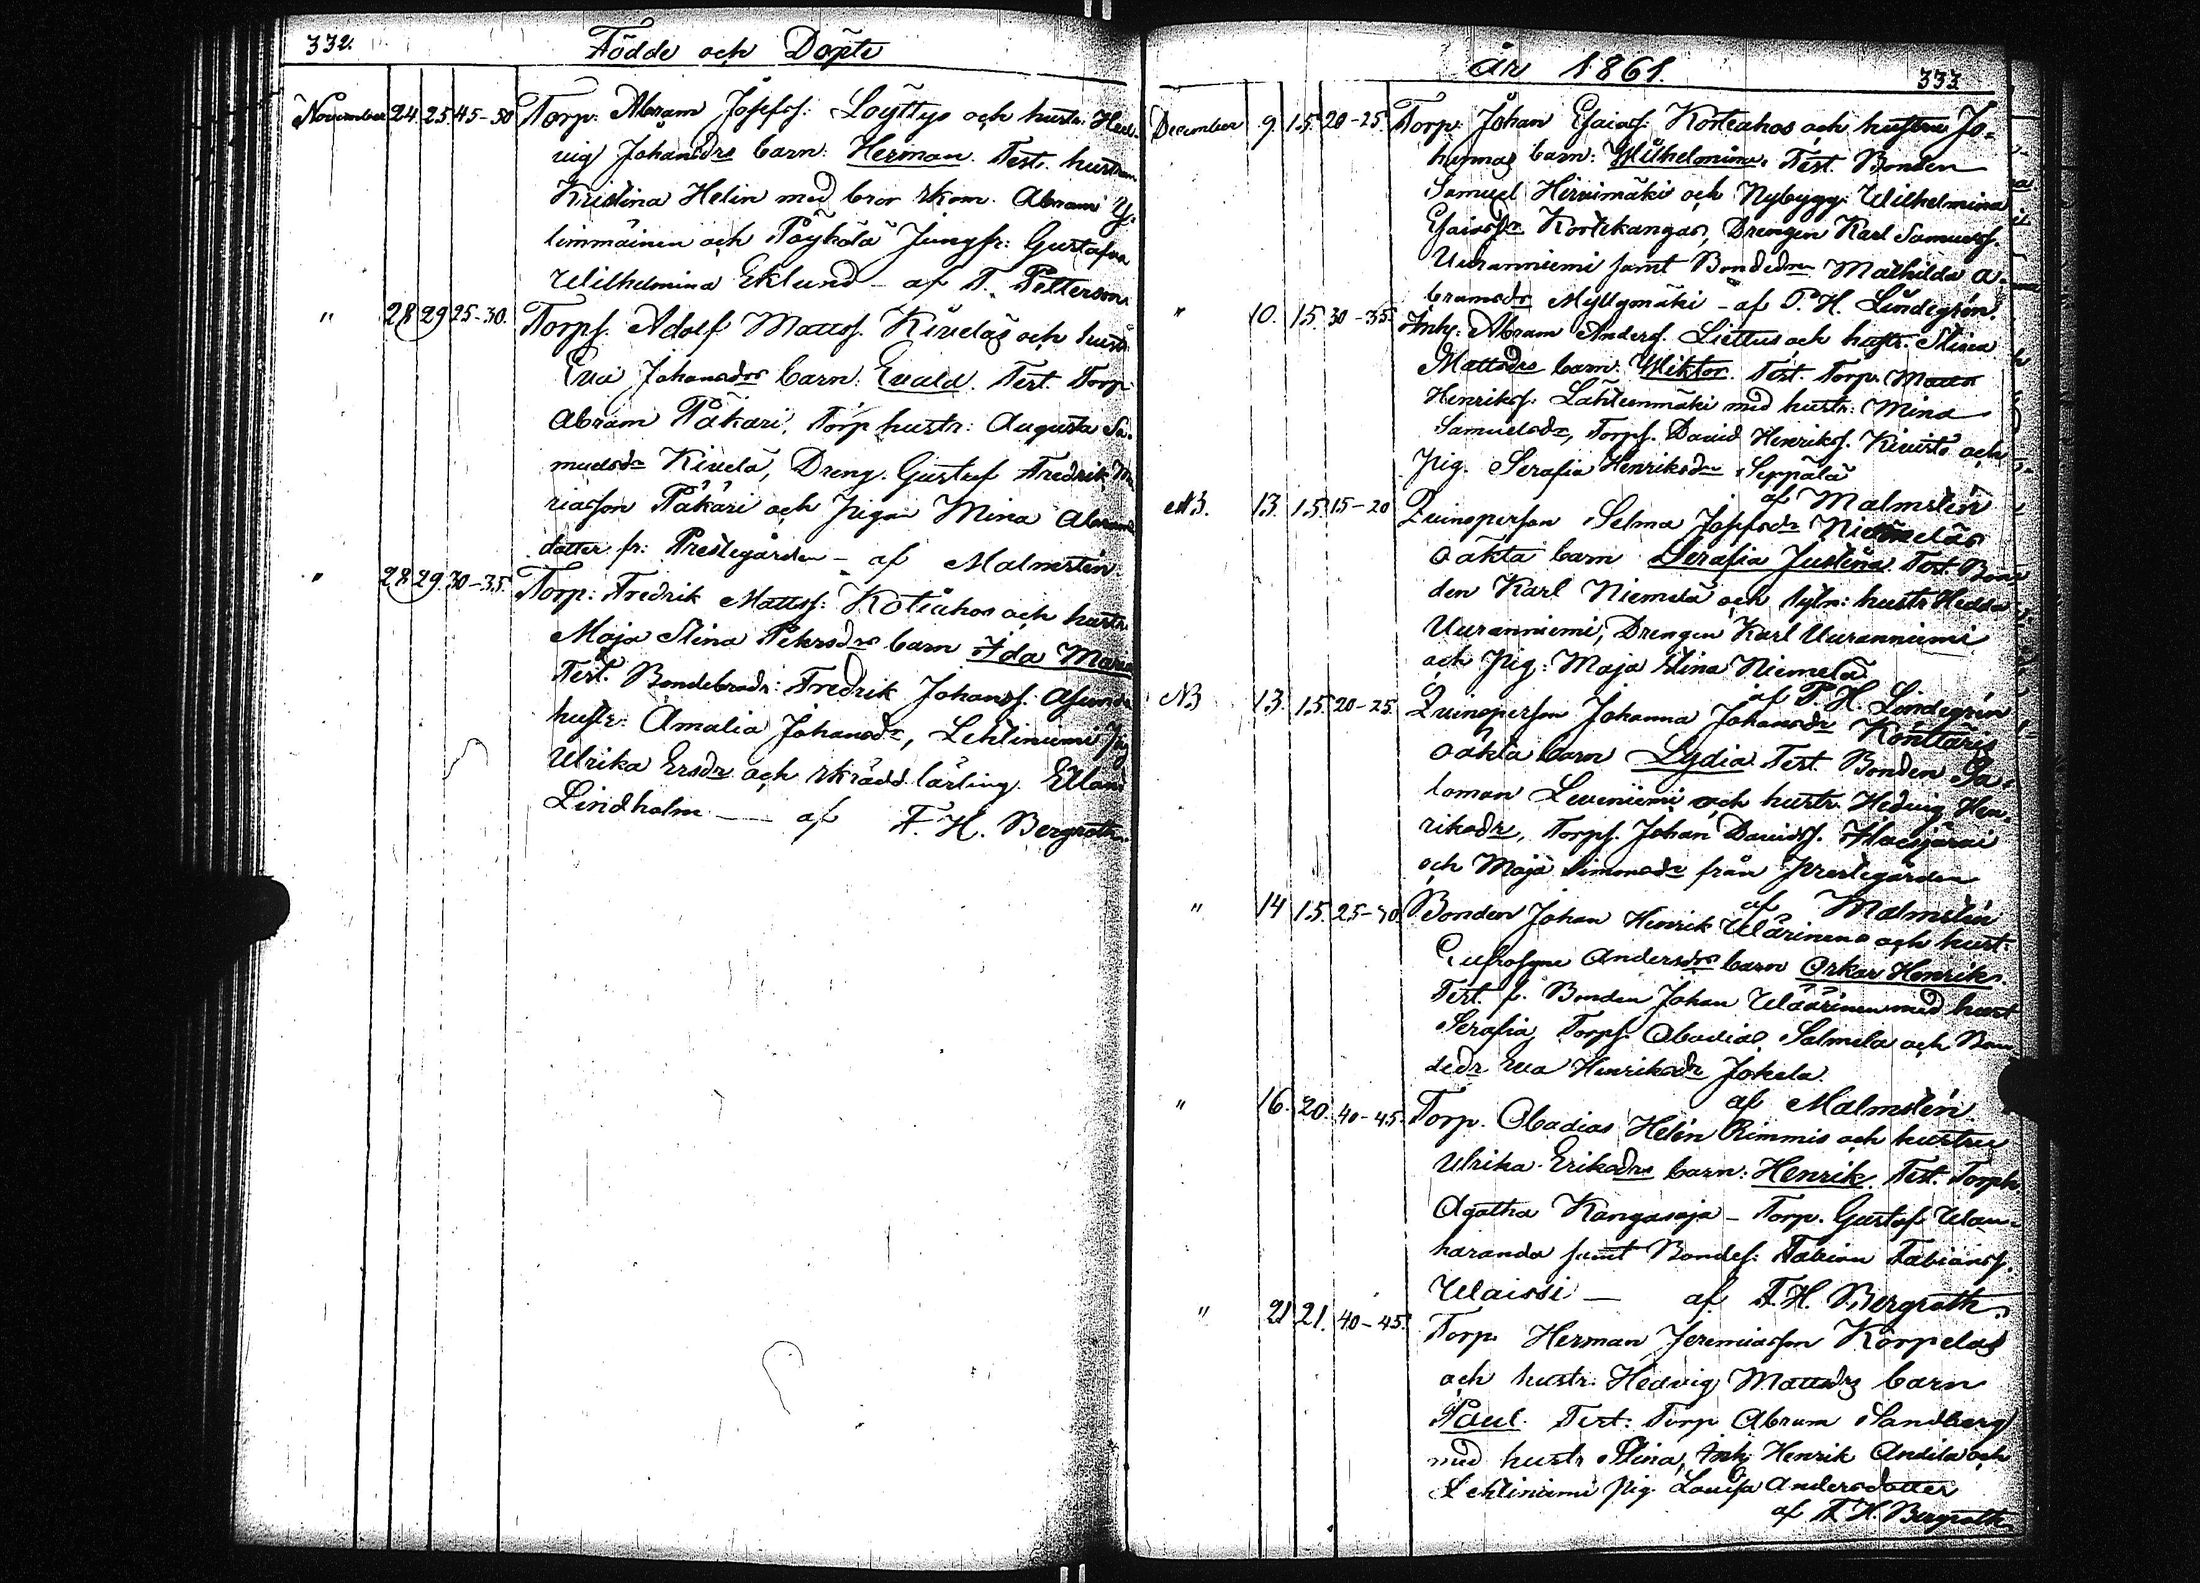 332.
Födde och Döpte
November 24. 25. 45-50 Torp. Abram Josefss. Löyttys och hustr. Hed-
vig Johansdrs barn: Herman. Test. hustrun
Kristina Helin med bror skom. Abram Y-
limmäinen och Pöykölä Jungfr: Gustafva
Wilhelmina Eklund - af A. Petterson.
" 28 29 25-30. Torps. Adolf Mattss. Kiveläs och hustr.
Eva Johansdrs barn: Evald. Test. Torp.
Abram Påkari, Torp hustr: Augusta Sa-
muelsdr Kivelä, Dreng. Gustaf Fredrik
riasson Påkari och Pigan Mina Abrams
dotter fr: Prestegården - af Malmstén.
" 28. 29. 30-35. Torp: Fredrik Mattss: Kotiahos och hustr.
Maja Stina Pehrsdrs barn Ida Maria
Test. Bondebrodr: Fredrik Johanss. Asunda
hustr: Amalia Johansdr, Lehtiniemi Pig
Ulrika Ersdr och skrädd. lärling. Elland
Lindholm — af F. H. Bergroth.
år 1861.
333.
December 9. 15. 20-25. Torp. Johan Esaiass. Kortiahos och hustru Jo-
hannas barn: Wilhelmina. Test. Bonden
Samuel Hirvimäki och Nybygg. Wilhelmina
Esaiasdr Kortekangas, Drengen Karl Samuelss.
Uuranniemi samt Bondedr. Mathilda A-
bramsdr Myllymäki - af P. H. Lindegrén.
" 10. 15. 30-35. Inhy. Abram Anderss. Liettus och hustr. Stina
Mattsdrs barn: Wiktor. Test. Torp. Matts
Henrikss. Lähteenmäki med hustr: Mina
Samuelsdr, Torps. David Henrikss. Kiviistö och
Pig. Serafia Henriksdr Seppälä
af Malmstén
NB. 13. 15. 15-20 Qvinsperson Selma Josefsdr Niemeläs
oäkta barn Serafia Justina. Test. Bon-
den Karl Niemelä och sytn: hustr Hedda
Uuranniemi, Drengen Karl Uuranniemi
och Pig: Maja Stina Niemelä
af P. H. Lindegrén
NB 13. 15. 20-25. Qvinsperson Johanna Johansdr Könttäris
oäkta barn Lydia Test. Bonden Sa-
loman Leveniemi och hustr. Hedvig Hen-
riksdr, Torps. Johan Davidss. Alaijärvi
och Maja Simonsdr från Prestegården
af Malmstén
" 14 15. 25-30. Bonden Johan Henrik Wäärinens och hust.
Eufrosyne Andersdrs barn Oskar Henrik.
Test. f. Bonden Johan Wäärinen med hust
Serafia, Torps. Abadias Salmela och Bon-
dedr Eva Henriksdr Jokela.
af Malmstén
" 16. 20. 40-45. Torp. Obadias Helén Rimmis och hustru
Ulrika Eriksdrs barn: Henrik. Test. Torph.
Agatha Kangasoja - Torp. Gustaf Wan-
haranda samt Bondes. Fabian Fabianss.
Waissi — af F. H. Bergroth.
" 21. 21. 40-45. Torp. Herman Jeremiasson Korpelas
och hustr. Hedvig Mattsdrs barn
Paul. Test: Torp Abram Sandberg
med hustr Stina, Inh. Henrik Andila och
Lehtiniemi Pig. Lovisa Andersdotter
af F. H. Bergroth